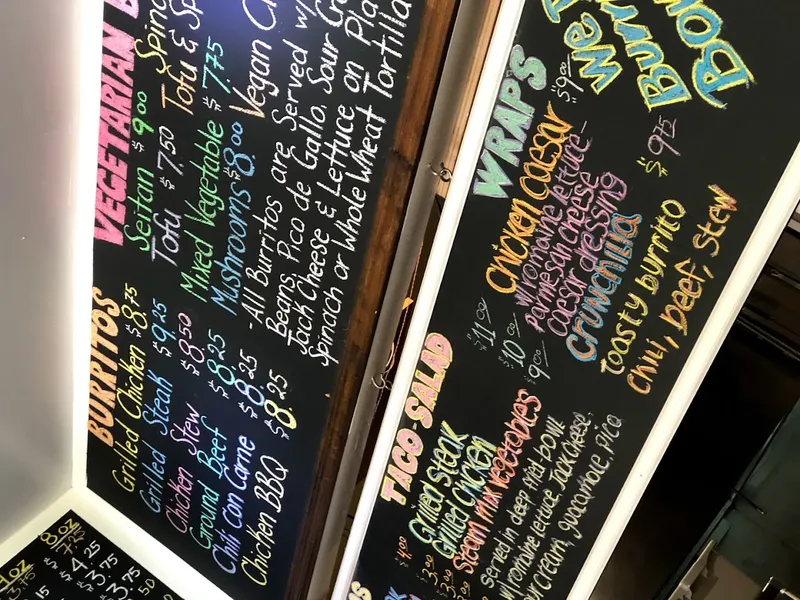 BURRITOS
Grilled Chicken $8.75
Grilled Steak $9.25
Chicken Stew $8.50
Ground Beef $8.25
Chili Con Carne $8.25
Chicken BBQ $8.25
VEGETARIAN B
Seitan $9.00
Tofu $7.50
Mixed Vegetable $7.75
Mushrooms $8.00
Spin
Tofu & Sp
Vegan C
- All Burritos are Served w/
Beans, Pico de Gallo, Sour Cr
Jack Cheese & Lettuce on Pla
Spinach or Whole Wheat Tortilla
TACO-SALAD
Grilled Steak $11.00
Grilled Chicken $10.00
Steam mix Vegetables $9.00
served in deep fried bowl
w/ romaine lettuce, Jack cheese,
sour cream, guacamole, Pico
WRAPS
Chicken Caesar $9.00
w/ romaine lettuce -
parmesan cheese
caesar dressing
Crunchilla $9.75
toasty burrito
chili, beef, stew
We
Burri
Bow
8 oz
$4.25
$3.75
$4.00